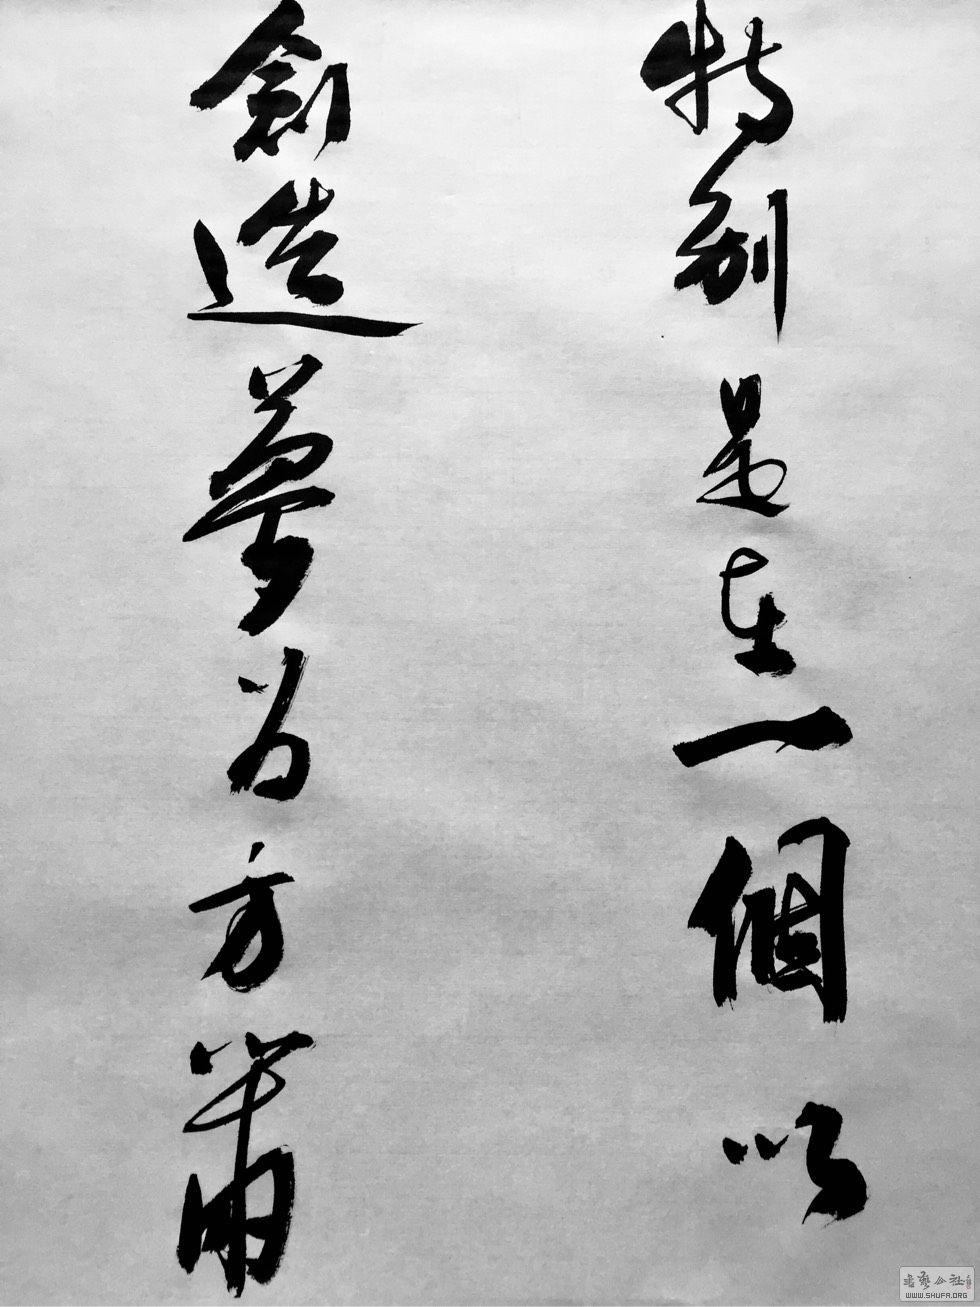 特别是在一個以
創造夢为方
書藝公社
WWW.SHUFA.ORG